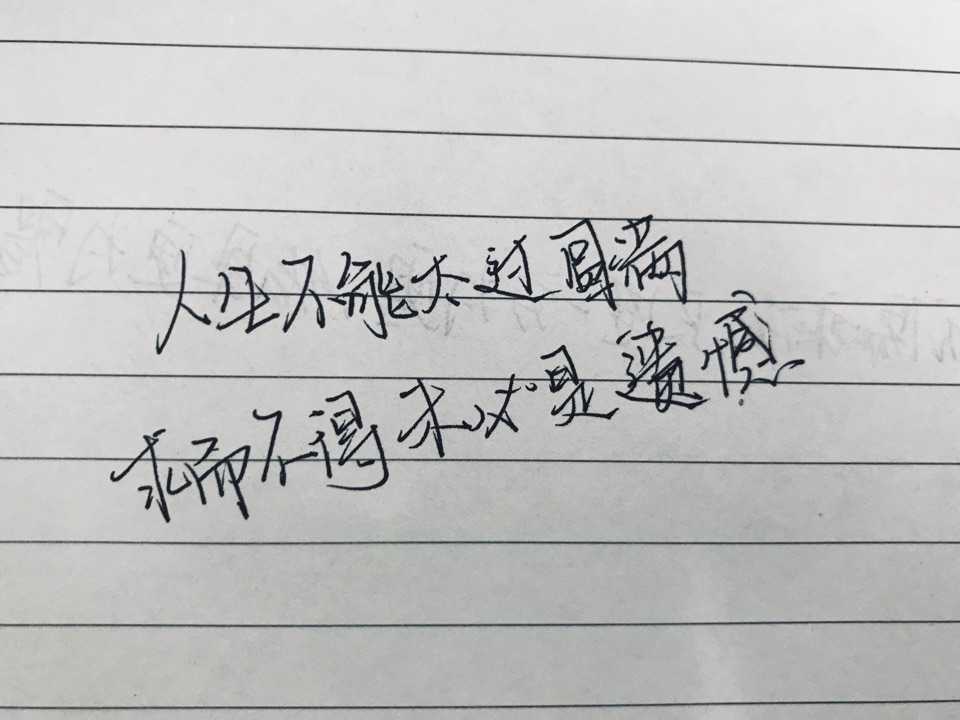 人生不能太过圆满
求而不得未必是遗憾